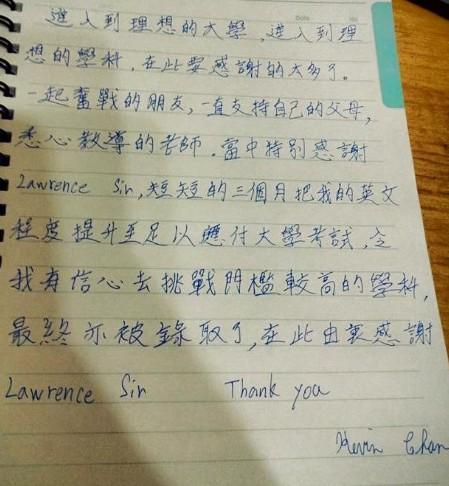 進入到理想的大學，進入到理
想的學科，在此要感謝的太多了。
一起奮戰的朋友，一直支持自己的父母，
悉心教導的老師。當中特別感謝
Lawrence Sir，短短的三個月把我的英文
程度提升至足以應付大學考試，令
我有信心去挑戰門檻較高的學科，
最終亦被錄取了，在此由衷感謝
Lawrence Sir Thank you
Kevin Chan